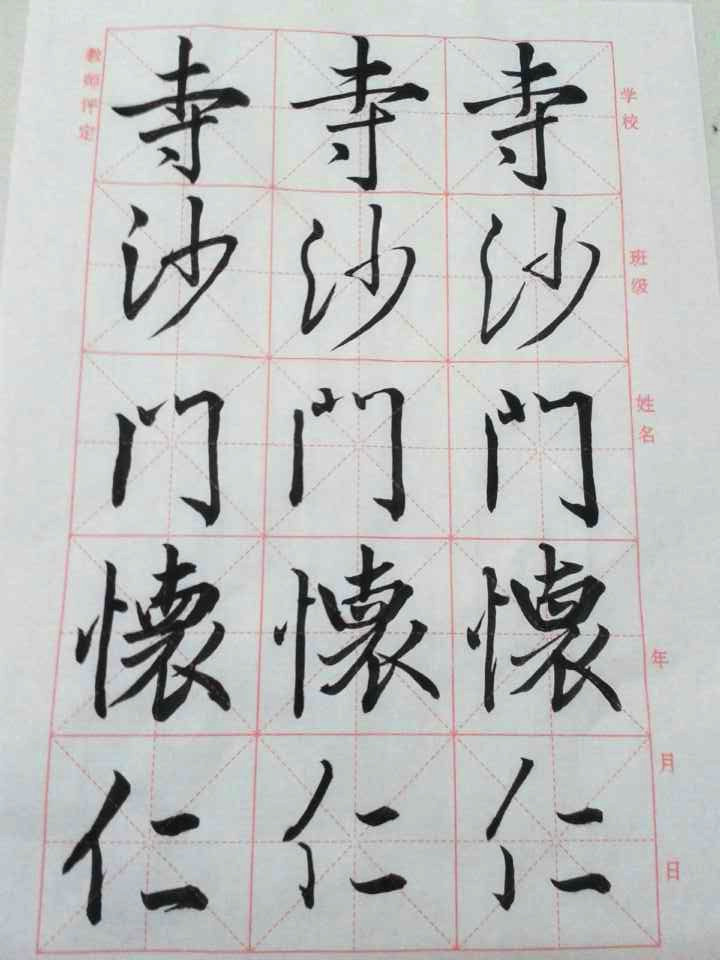 寺寺寺
沙沙沙
门门门
懐懐懐
仁仁仁
教师评定
学校
班级
姓名
年
月
日